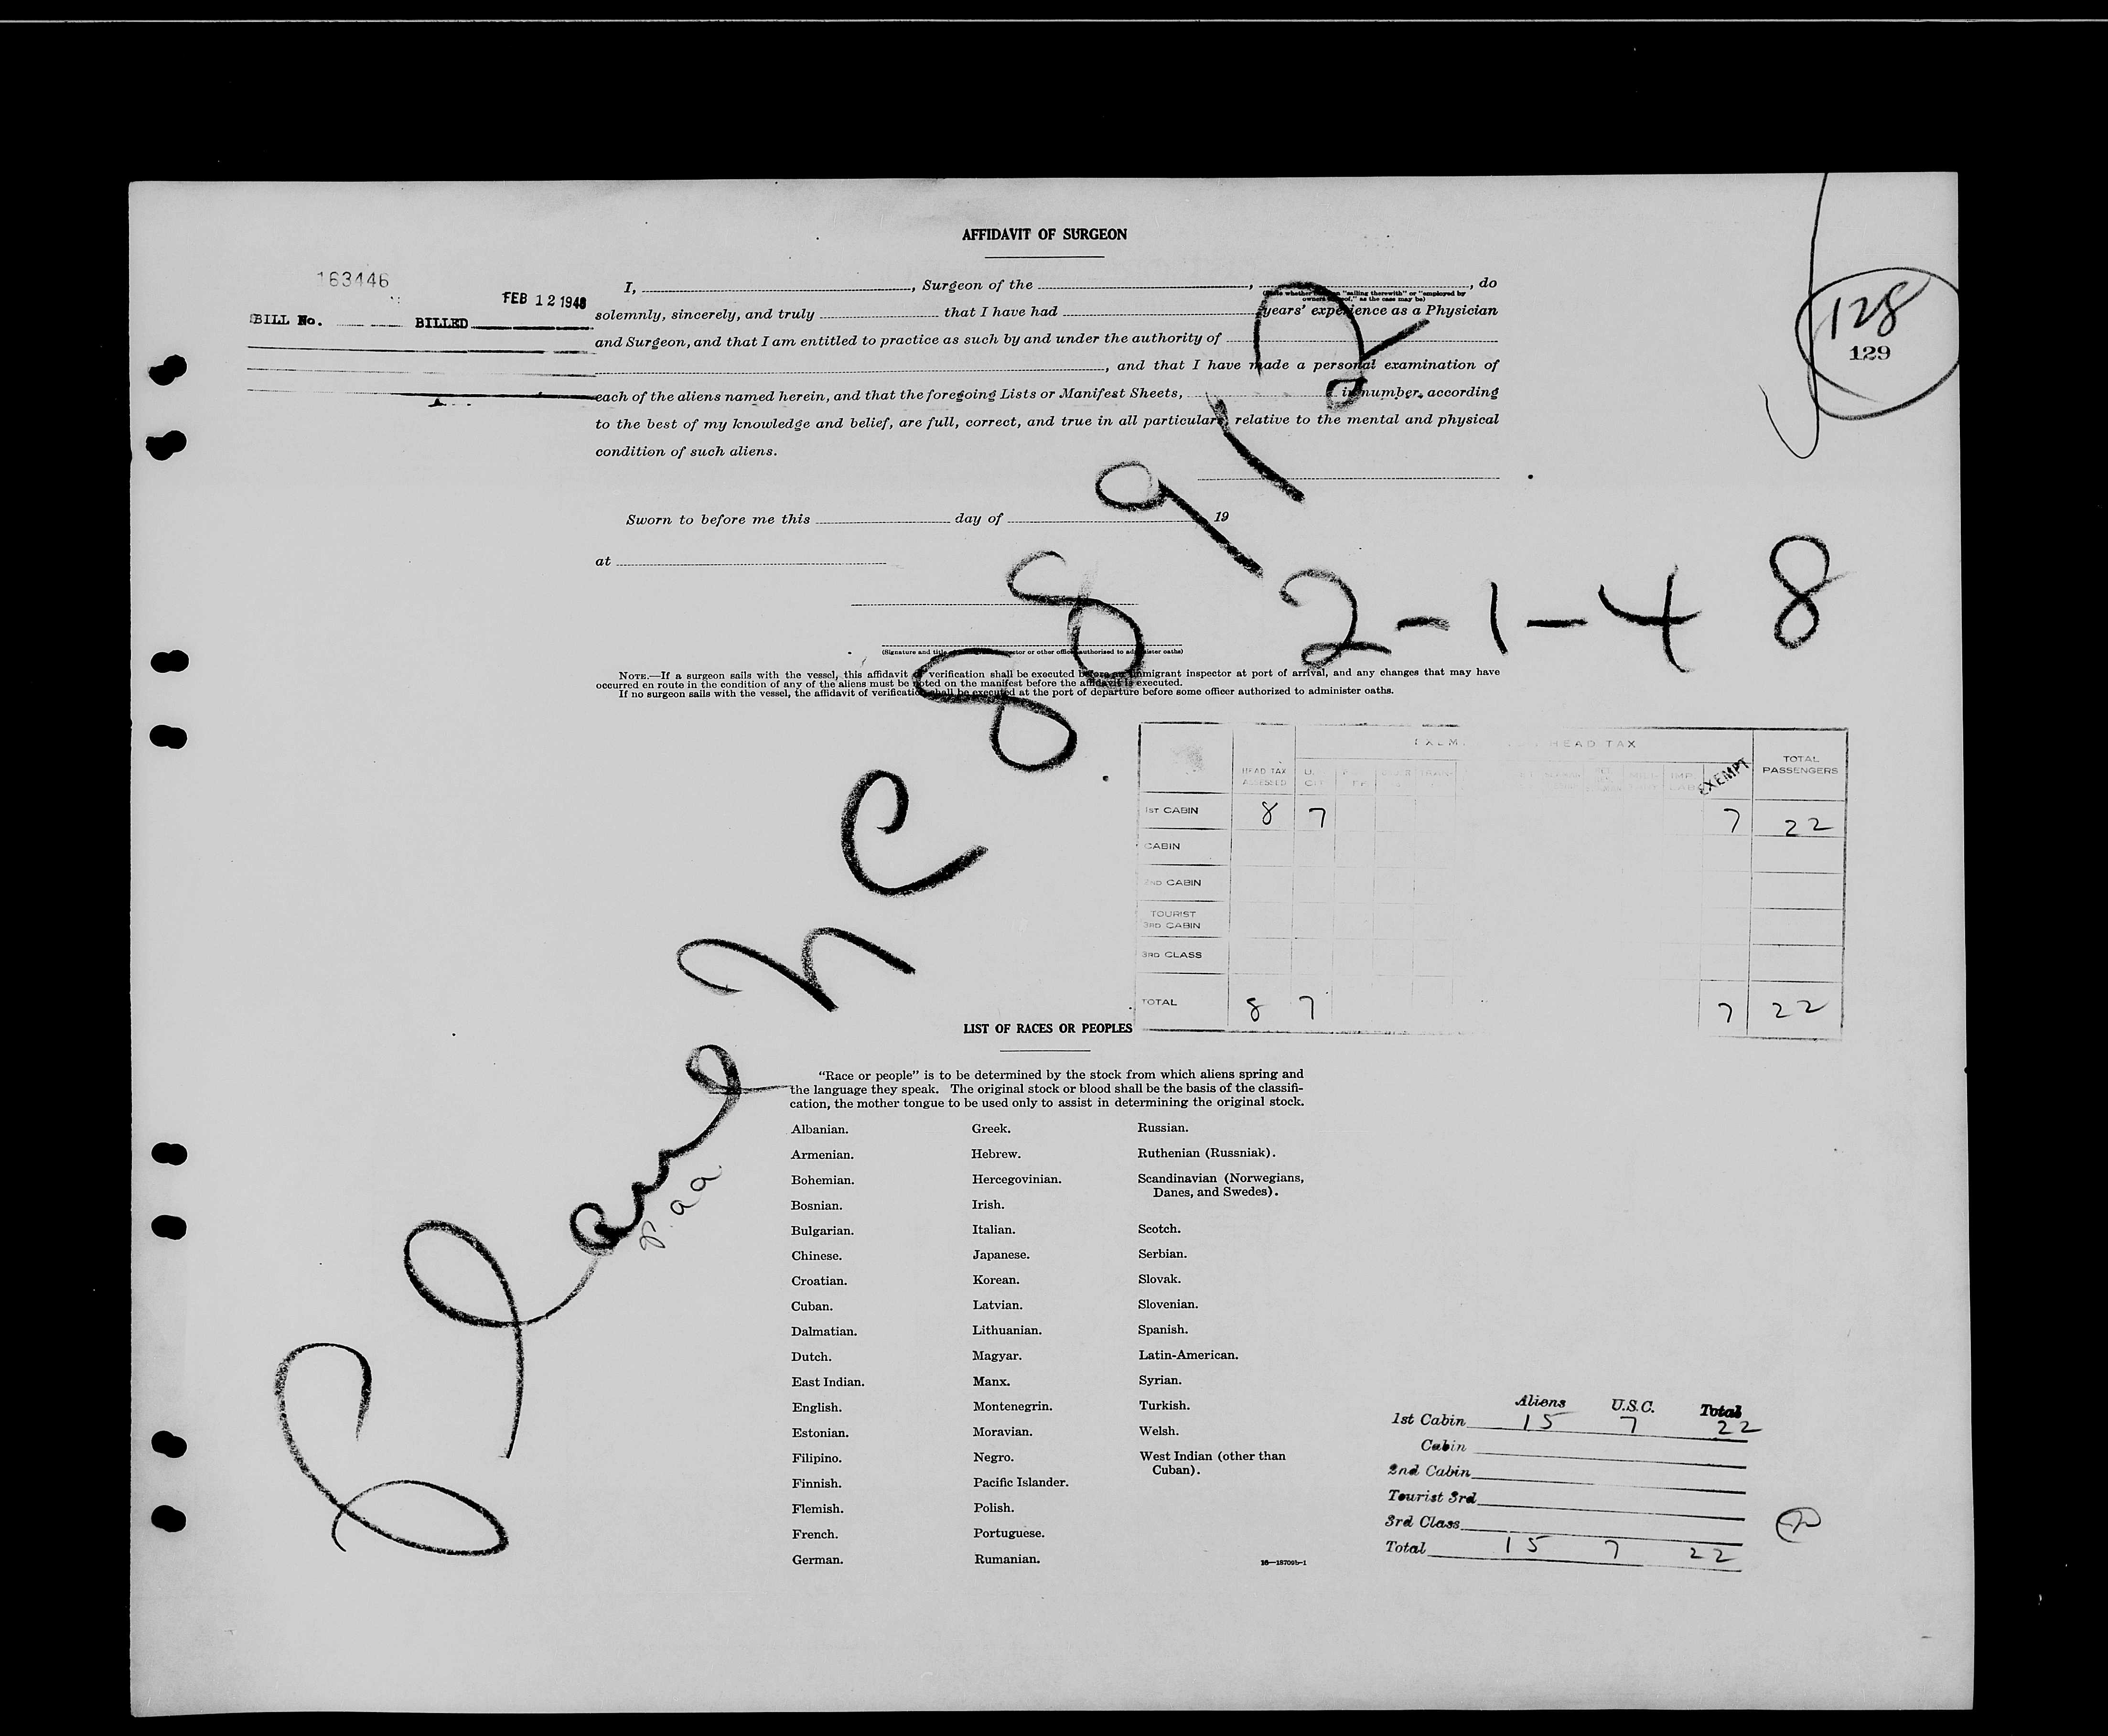 AFFIDAVIT OF SURGEON
163446
FEB 12 1948
BILL No. BILLED
I, , Surgeon of the , , do
(State whether "sailing therewith" or "employed by
owners thereof," as the case may be)
solemnly, sincerely, and truly that I have had years' experience as a Physician
and Surgeon, and that I am entitled to practice as such by and under the authority of
, and that I have made a personal examination of
each of the aliens named herein, and that the foregoing Lists or Manifest Sheets, in number, according
to the best of my knowledge and belief, are full, correct, and true in all particulars, relative to the mental and physical
condition of such aliens.
128
129
Sworn to before me this day of 19
at
Plane NC 88912
2-1-48
P.aa
(Signature and title of immigrant inspector or other officer authorized to administer oaths)
NOTE.—If a surgeon sails with the vessel, this affidavit of verification shall be executed before an immigrant inspector at port of arrival, and any changes that may have
occurred en route in the condition of any of the aliens must be noted on the manifest before the affidavit is executed.
If no surgeon sails with the vessel, the affidavit of verification shall be executed at the port of departure before some officer authorized to administer oaths.
HEAD TAX
HEAD TAX ASSESSED EXEMPT TOTAL PASSENGERS
1ST CABIN 8 7 7 22
CABIN
2ND CABIN
TOURIST
3RD CABIN
3RD CLASS
TOTAL 8 7 7 22
LIST OF RACES OR PEOPLES
"Race or people" is to be determined by the stock from which aliens spring and
the language they speak. The original stock or blood shall be the basis of the classifi-
cation, the mother tongue to be used only to assist in determining the original stock.
Albanian. Greek. Russian.
Armenian. Hebrew. Ruthenian (Russniak).
Bohemian. Hercegovinian. Scandinavian (Norwegians,
Danes, and Swedes).
Bosnian. Irish.
Bulgarian. Italian. Scotch.
Chinese. Japanese. Serbian.
Croatian. Korean. Slovak.
Cuban. Latvian. Slovenian.
Dalmatian. Lithuanian. Spanish.
Dutch. Magyar. Latin-American.
East Indian. Manx. Syrian.
English. Montenegrin. Turkish.
Estonian. Moravian. Welsh.
Filipino. Negro. West Indian (other than
Cuban).
Finnish. Pacific Islander.
Flemish. Polish.
French. Portuguese.
German. Rumanian.
16—18709b-1
Aliens U.S.C. Total
1st Cabin 15 7 22
Cabin
2nd Cabin
Tourist 3rd
3rd Class
Total 15 7 22